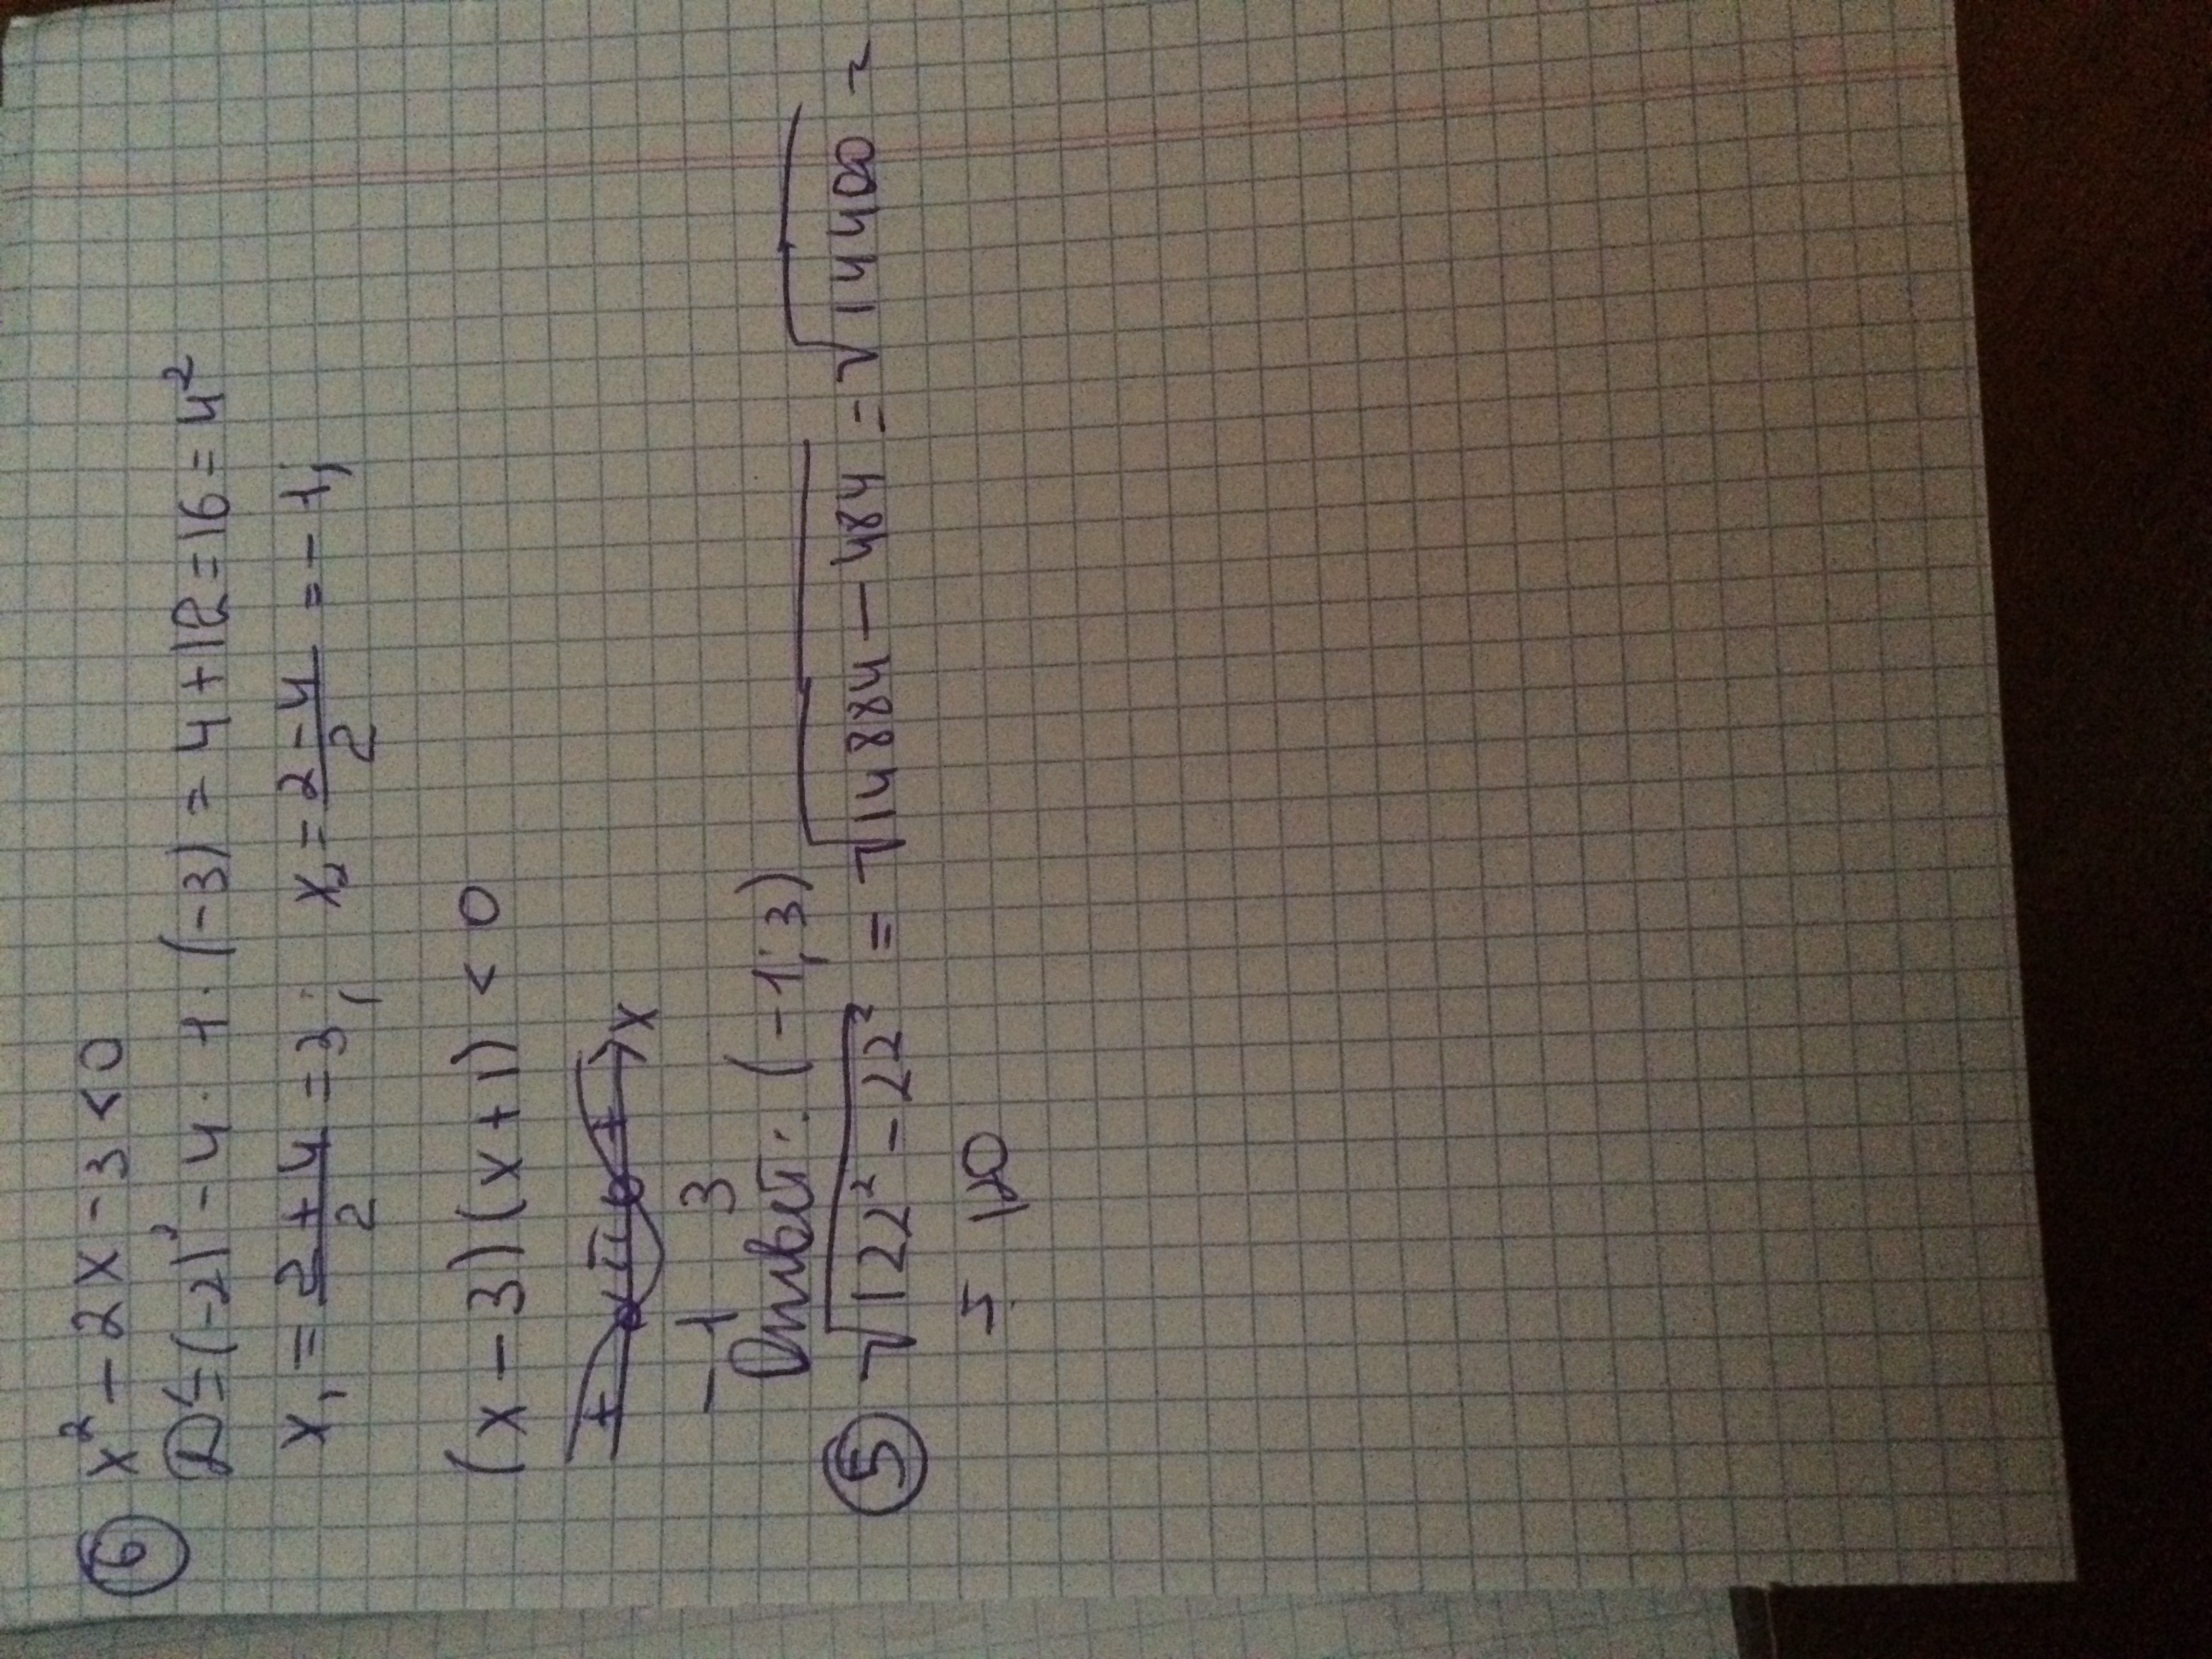 ⑥ x² - 2x - 3 < 0
D = (-2)² - 4 · 1 · (-3) = 4 + 12 = 16 = 4²
x₁ = (2 + 4)/2 = 3; x₂ = (2 - 4)/2 = -1;
(x - 3)(x + 1) < 0
+ - + x
-1 3
Ответ: (-1; 3)
⑤ √(122² - 22²) = √(14884 - 484) = √14400 =
= 120